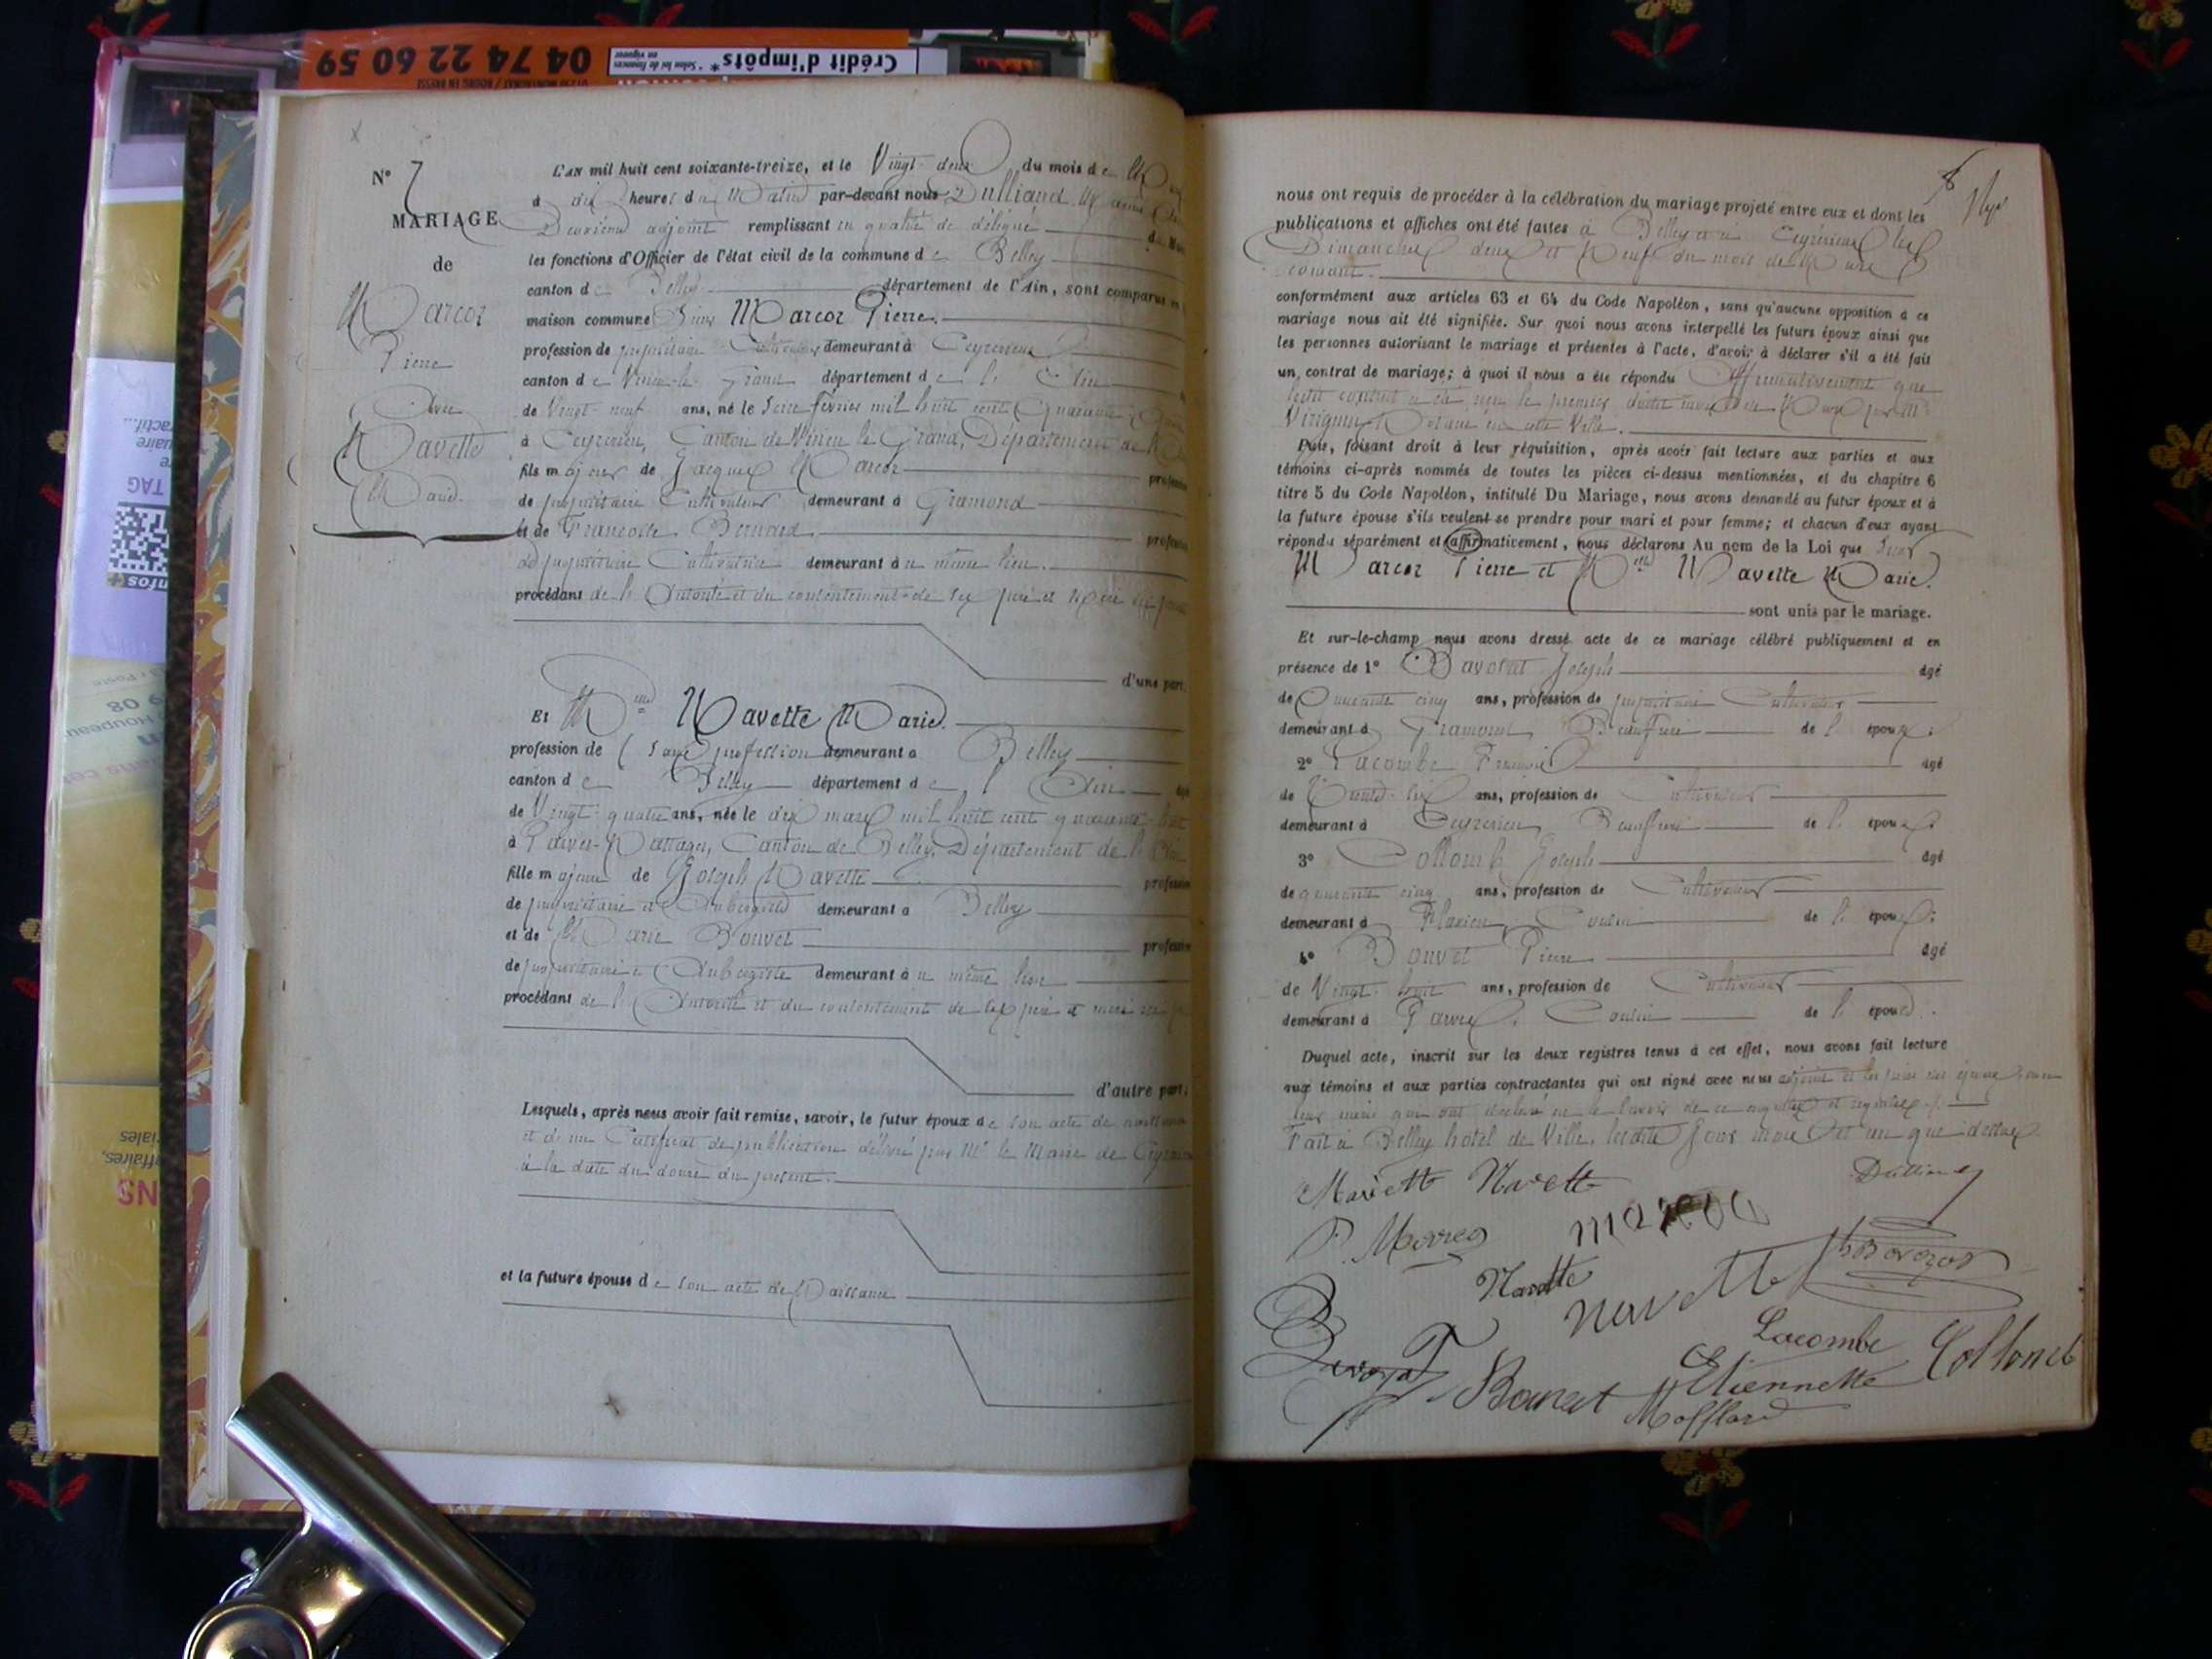 04 74 22 60 59
Crédit d'impôts*
N° 7
MARIAGE
de
Marcoz
Pierre
Avec
Navette
Marie.
L'AN mil huit cent soixante-treize, et le Vingt-deux du mois de
à dix heures du Matin par-devant nous Dulliand
adjoint remplissant en qualité de délégué
les fonctions d'Officier de l'état civil de la commune de Belley
canton de Belley département de l'Ain, sont comparus en
maison commune Sieur Marcoz Pierre.
profession de propriétaire Cultivateur demeurant à Ceyzerieu
canton de Virieu-le-Grand département de l'Ain
de Vingt-neuf ans, né le Sept février mil huit cent Quarante
à Ceyzerieu, Canton de Virieu le Grand, Département de l'Ain
fils majeur de Jacques Marcoz
de propriétaire Cultivateur demeurant à Gramond
et de Françoise Bernard
de propriétaire Cultivatrice demeurant au même lieu.
procédant de l'Autorité et du consentement de ses père et mère
d'une part.
Et Mlle Navette Marie.
profession de (Sans profession demeurant à Belley
canton de Belley département de l'Ain
de Vingt-quatre ans, née le dix mars mil huit cent quarante-huit
à Parves-Nattages, Canton de Belley, Département de l'Ain
fille majeure de Joseph Navette
de propriétaire et Aubergiste demeurant à Belley
et de Marie Bouvet
de propriétaire Aubergiste demeurant au même lieu
procédant de l'Autorité et du consentement de ses père et mère
d'autre part.
Lesquels, après nous avoir fait remise, savoir, le futur époux de son acte de naissance
et de un Certificat de publication délivré par Mr le Maire de
à la date du douze du présent.
et la future épouse de son acte de Naissance
nous ont requis de procéder à la célébration du mariage projeté entre eux et dont les
publications et affiches ont été faites à Belley et à Ceyzerieu les
Dimanches deux et Neuf du mois de Mars
courant.
conformément aux articles 63 et 64 du Code Napoléon, sans qu'aucune opposition à ce
mariage nous ait été signifiée. Sur quoi nous avons interpellé les futurs époux ainsi que
les personnes autorisant le mariage et présentes à l'acte, d'avoir à déclarer s'il a été fait
un contrat de mariage; à quoi il nous a été répondu Affirmativement que
ledit contrat a été reçu le premier
Notaire en cette Ville.
Puis, faisant droit à leur réquisition, après avoir fait lecture aux parties et aux
témoins ci-après nommés de toutes les pièces ci-dessus mentionnées, et du chapitre 6
titre 5 du Code Napoléon, intitulé Du Mariage, nous avons demandé au futur époux et à
la future épouse s'ils veulent se prendre pour mari et pour femme; et chacun d'eux ayant
répondu séparément et affirmativement, nous déclarons Au nom de la Loi que Sieur
Marcoz Pierre et Mlle Navette Marie.
sont unis par le mariage.
Et sur-le-champ nous avons dressé acte de ce mariage célébré publiquement et en
présence de 1° Bavozat Joseph âgé
de Quarante cinq ans, profession de propriétaire Cultivateur
demeurant à Gramond, Beaufrère de l'époux;
2° Lacombe François âgé
de Trente-six ans, profession de Cultivateur
demeurant à Ceyzerieu Beaufrère de l'époux;
3° Collomb Joseph âgé
de quarante cinq ans, profession de Cultivateur
demeurant à Flaxieu, Cousin de l'époux;
4° Bouvet Pierre âgé
de Vingt-huit ans, profession de Cultivateur
demeurant à Parves, Cousin de l'épouse.
Duquel acte, inscrit sur les deux registres tenus à cet effet, nous avons fait lecture
aux témoins et aux parties contractantes qui ont signé avec nous adjoint et les pères des époux
leurs mères qui ont déclaré ne le savoir de ce enquises et requises
Fait à Belley hôtel de Ville, lesdits Jour mois et an que dessus.
Mariette Navette
Navette
Lacombe
Collomb
Etiennette
Mofflard